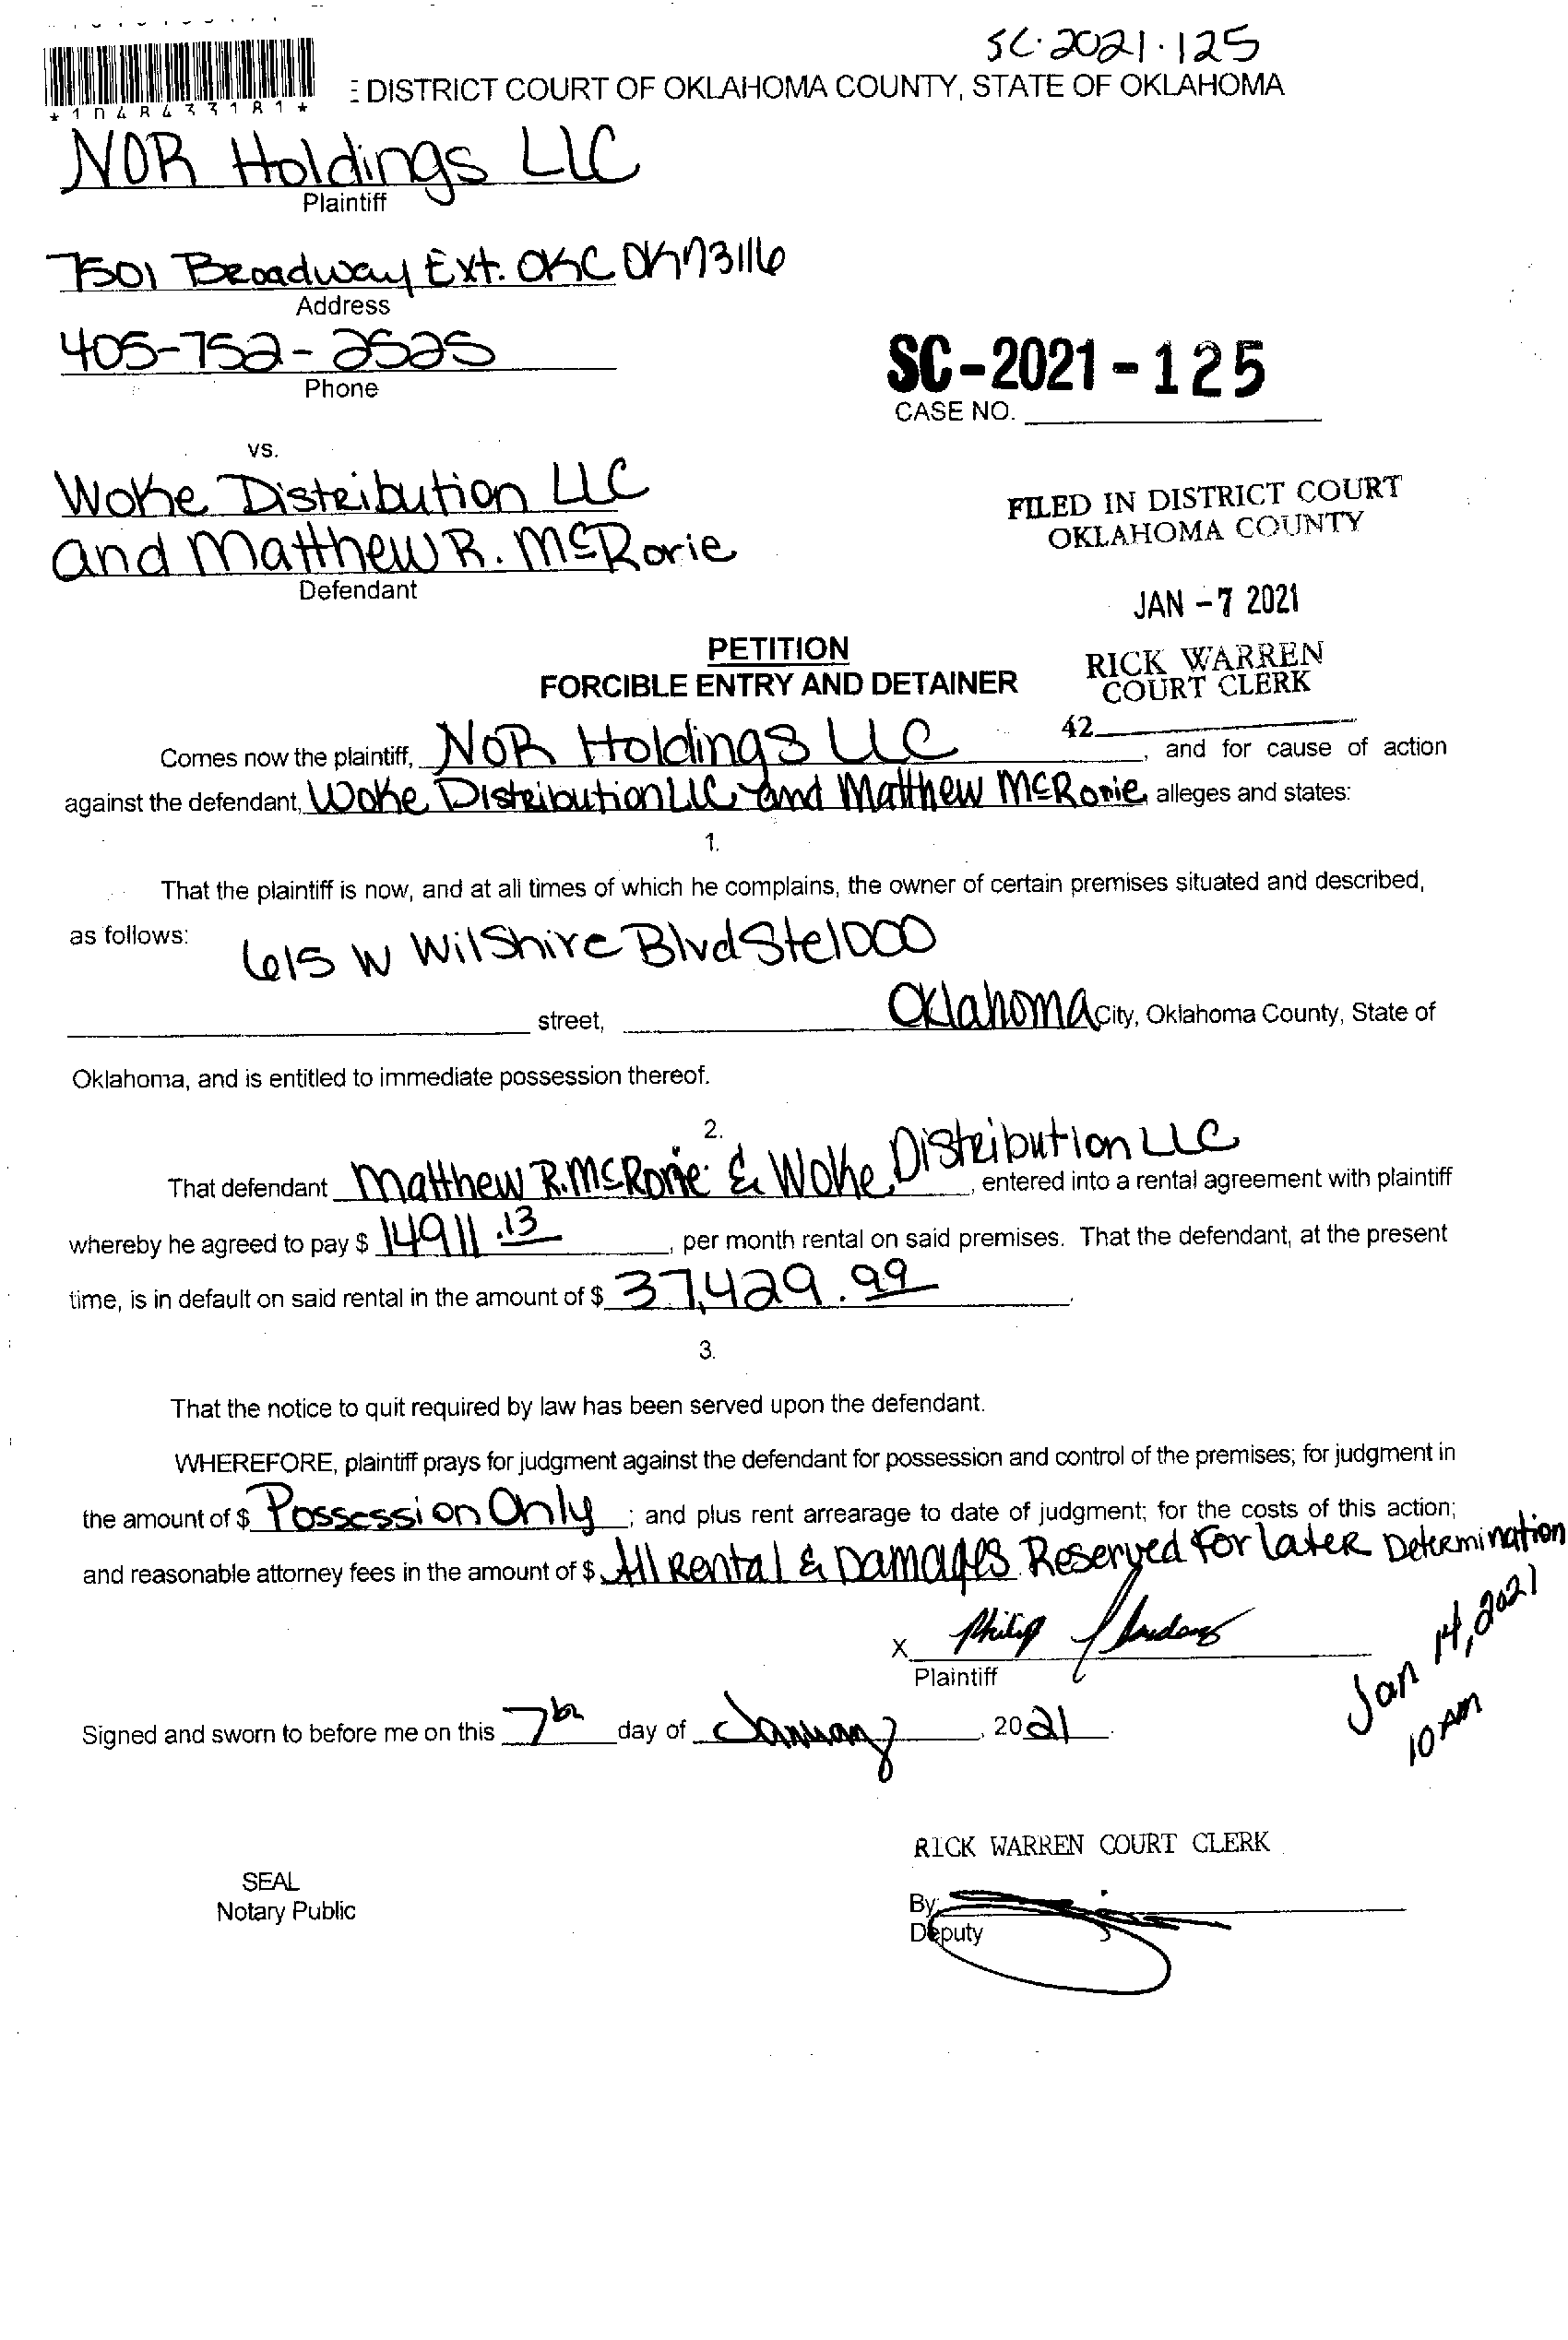 SC-2021-125
*1048433181*
E DISTRICT COURT OF OKLAHOMA COUNTY, STATE OF OKLAHOMA
NOR Holdings LLC
Plaintiff
7501 Broadway Ext. OKC OK 73116
Address
405-752-2525
Phone
SC-2021-125
CASE NO.
vs.
Woke Distribution LLC
and Matthew R. McRorie
Defendant
FILED IN DISTRICT COURT
OKLAHOMA COUNTY
JAN -7 2021
RICK WARREN
COURT CLERK
42
PETITION
FORCIBLE ENTRY AND DETAINER
Comes now the plaintiff, NOR Holdings LLC, and for cause of action
against the defendant, Woke Distribution LLC and Matthew McRorie, alleges and states:
1.
That the plaintiff is now, and at all times of which he complains, the owner of certain premises situated and described,
as follows: 615 W Wilshire Blvd Ste 1000
street, Oklahoma City, Oklahoma County, State of
Oklahoma, and is entitled to immediate possession thereof.
2.
That defendant Matthew R. McRorie & Woke Distribution LLC, entered into a rental agreement with plaintiff
whereby he agreed to pay $ 14911.13, per month rental on said premises. That the defendant, at the present
time, is in default on said rental in the amount of $ 37,429.99.
3.
That the notice to quit required by law has been served upon the defendant.
WHEREFORE, plaintiff prays for judgment against the defendant for possession and control of the premises; for judgment in
the amount of $ Possession Only; and plus rent arrearage to date of judgment; for the costs of this action;
and reasonable attorney fees in the amount of $ All Rental & Damages Reserved for later Determination
X Philip
Plaintiff
Jan 14, 2021
10 AM
Signed and sworn to before me on this 7th day of January, 2021.
RICK WARREN COURT CLERK
SEAL
Notary Public
By:
Deputy